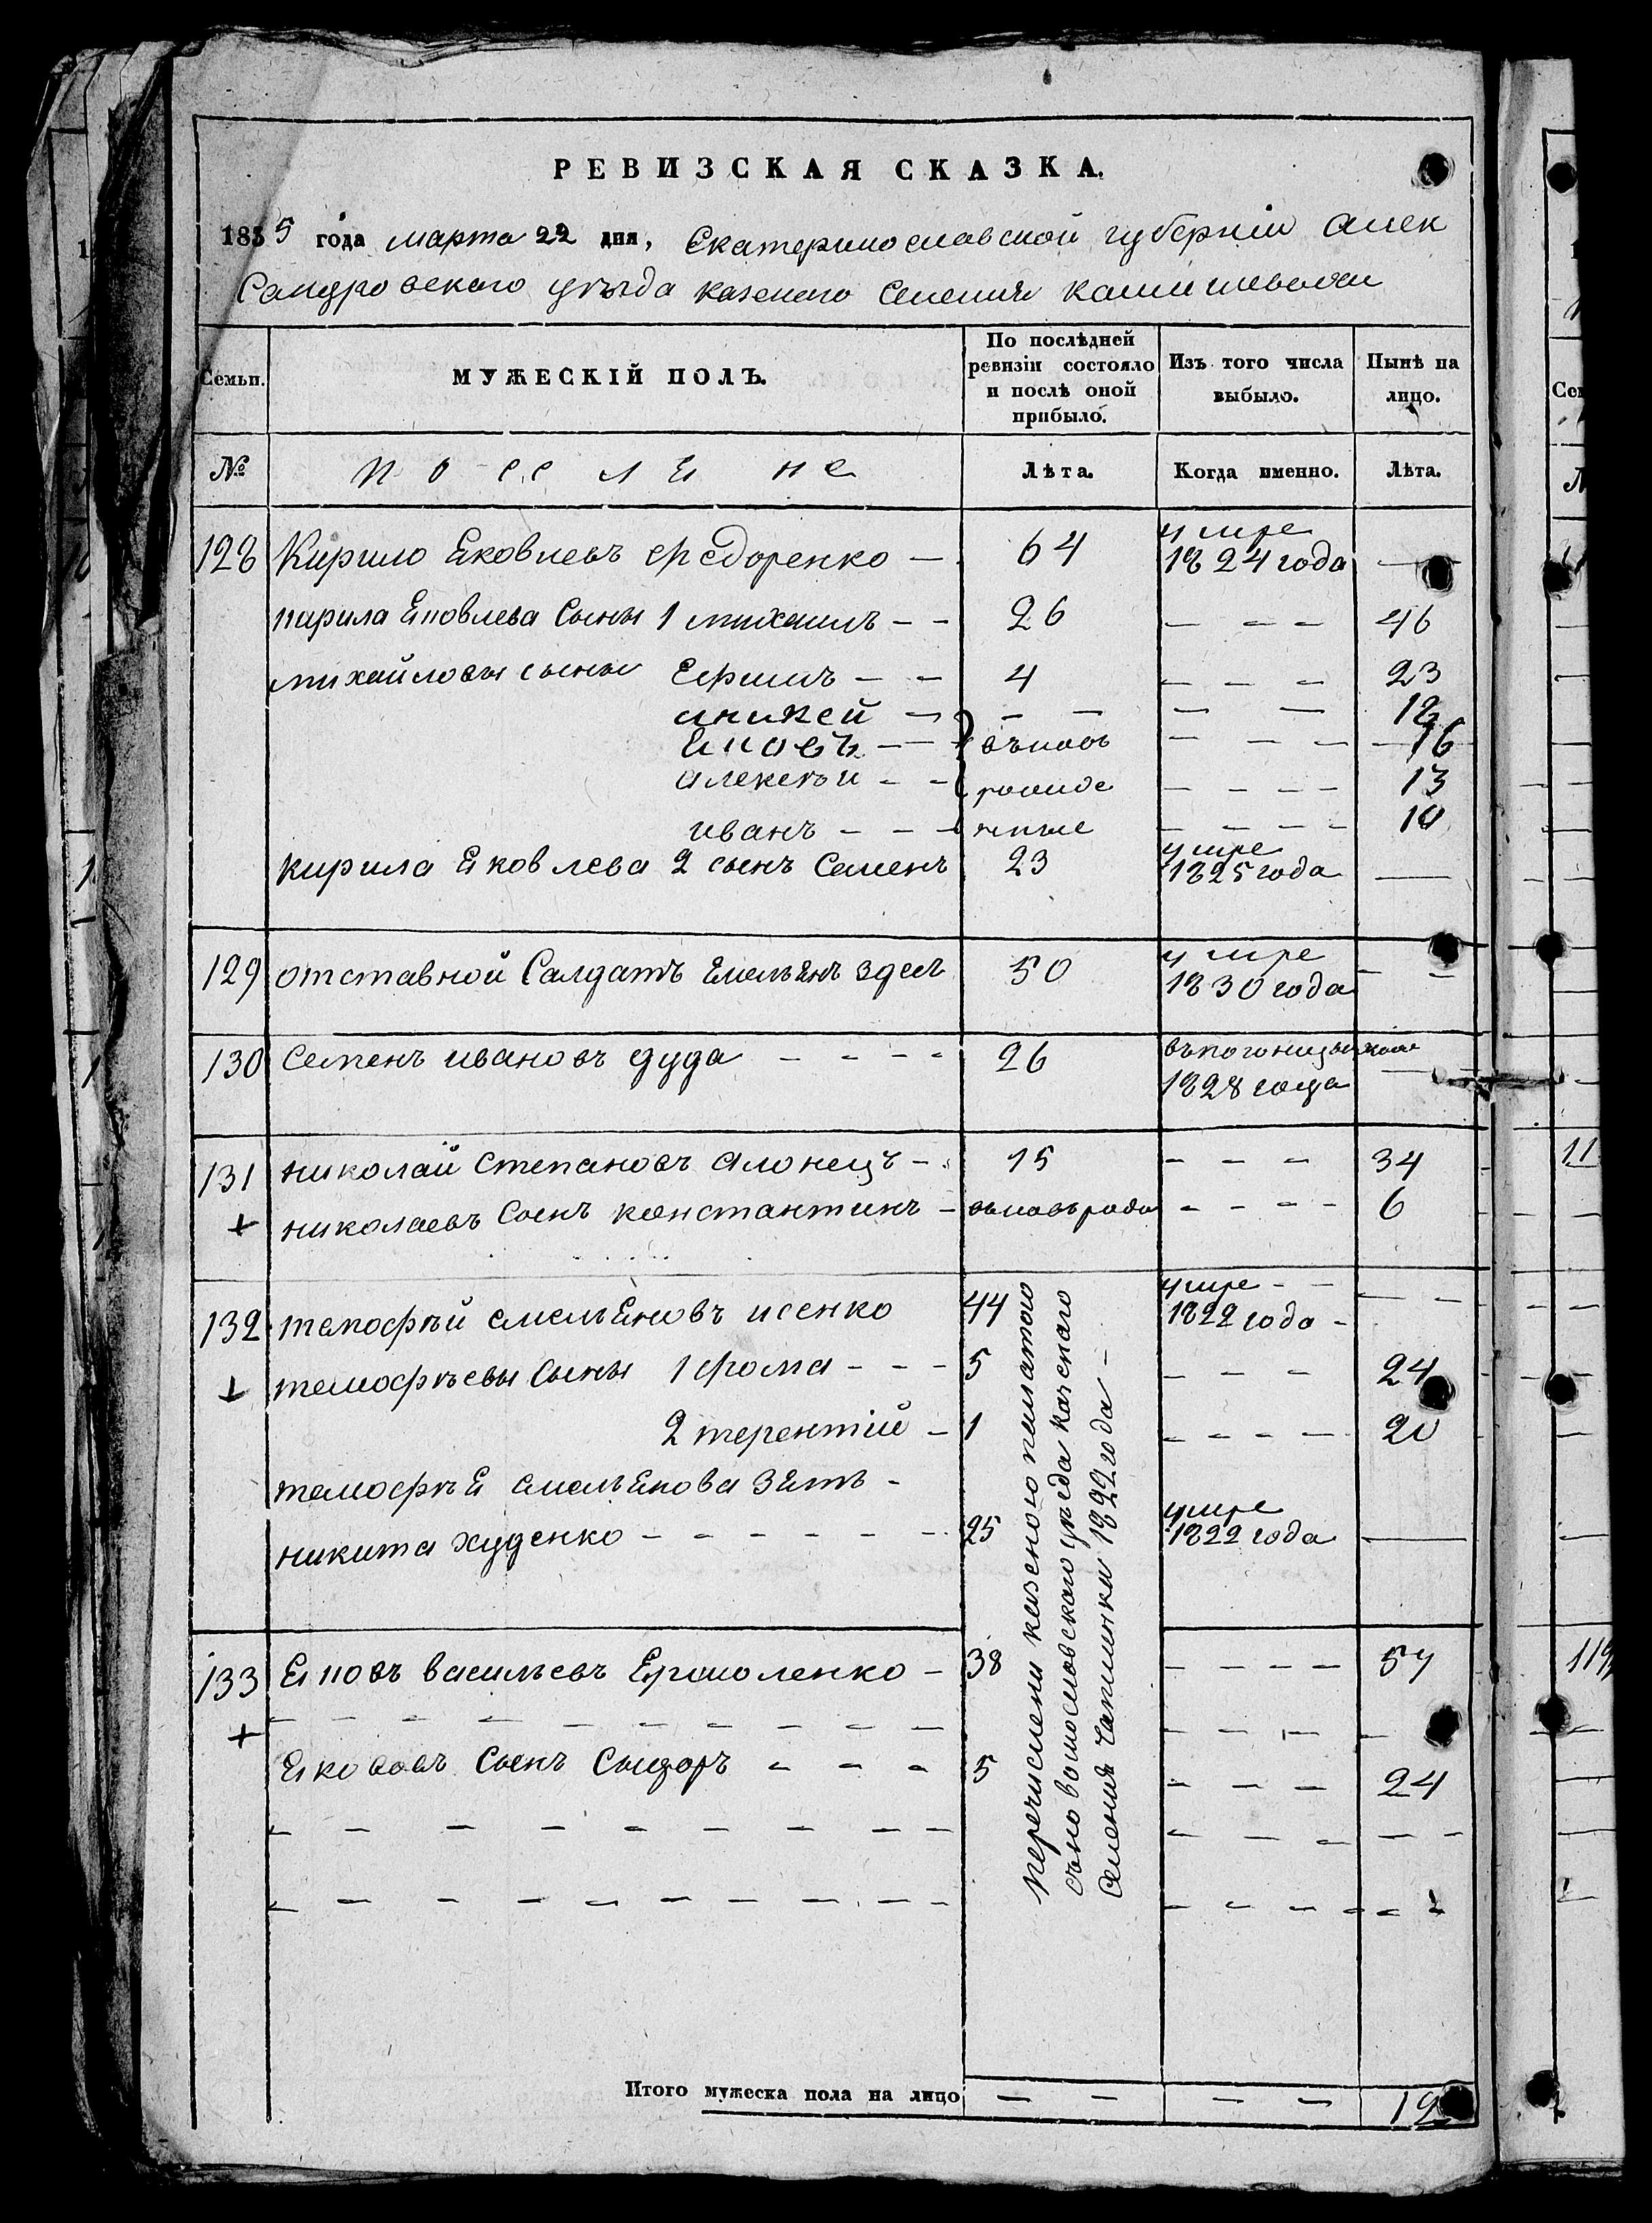 РЕВИЗСКАЯ СКАЗКА.
1835 года марта 22 дня, Екатеринославской губернии Алек
Сандровского уезда казеного Селения камишевахи
Семьи.
МУЖЕСКІЙ ПОЛЪ.
По послѣдней ревизіи состояло и послѣ оной прибыло.
Изъ того числа выбыло.
Нынѣ на лицо.
№
Лѣта.
Когда именно.
Лѣта.
128 Кирило Яковлевъ Федоренко — 64 умре 1824 года —
кирила Яковлева Сыны 1 михаилъ - - 26 - - - 46
михайловы сыны Ефимъ - - 4 - - - 23
аникей - - - - - 18
Яковъ - - въновь - - - 16
алексѣй - - рожде - - - - 13
иванъ - - - нные - - - - 10
кирила Яковлева 2 сынъ Семенъ 23 умре 1825 года —
129 отставной Салдатъ Емельянъ 50 умре 1830 года - -
130 Семенъ ивановъ дуда - - - - 26 1828 года —
131 николай Степановъ Алонецъ - 15 - - - 34
+ николаевъ Сынъ константинъ - въновъ родн - - - - 6
132 темофѣй емельяновъ исенко 44 умре - - 1822 года - - -
+ темофѣевы Сыны 1 фома - - - 5 - - - 24
2 терентій - 1 - - - - 20
темофѣя емельянова Зять -
никита худенко - - - - - - 25 умре 1822 года —
133 Яковъ васильевъ Ермоленко - 38 - - - - 57
+
Яковъ Сынъ Сыдоръ - - - 5 - - - 24
перечислены казеною палатою
уезда казенаго
Селения 1822 года -
Итого мужеска пола на лицо - - - - 12